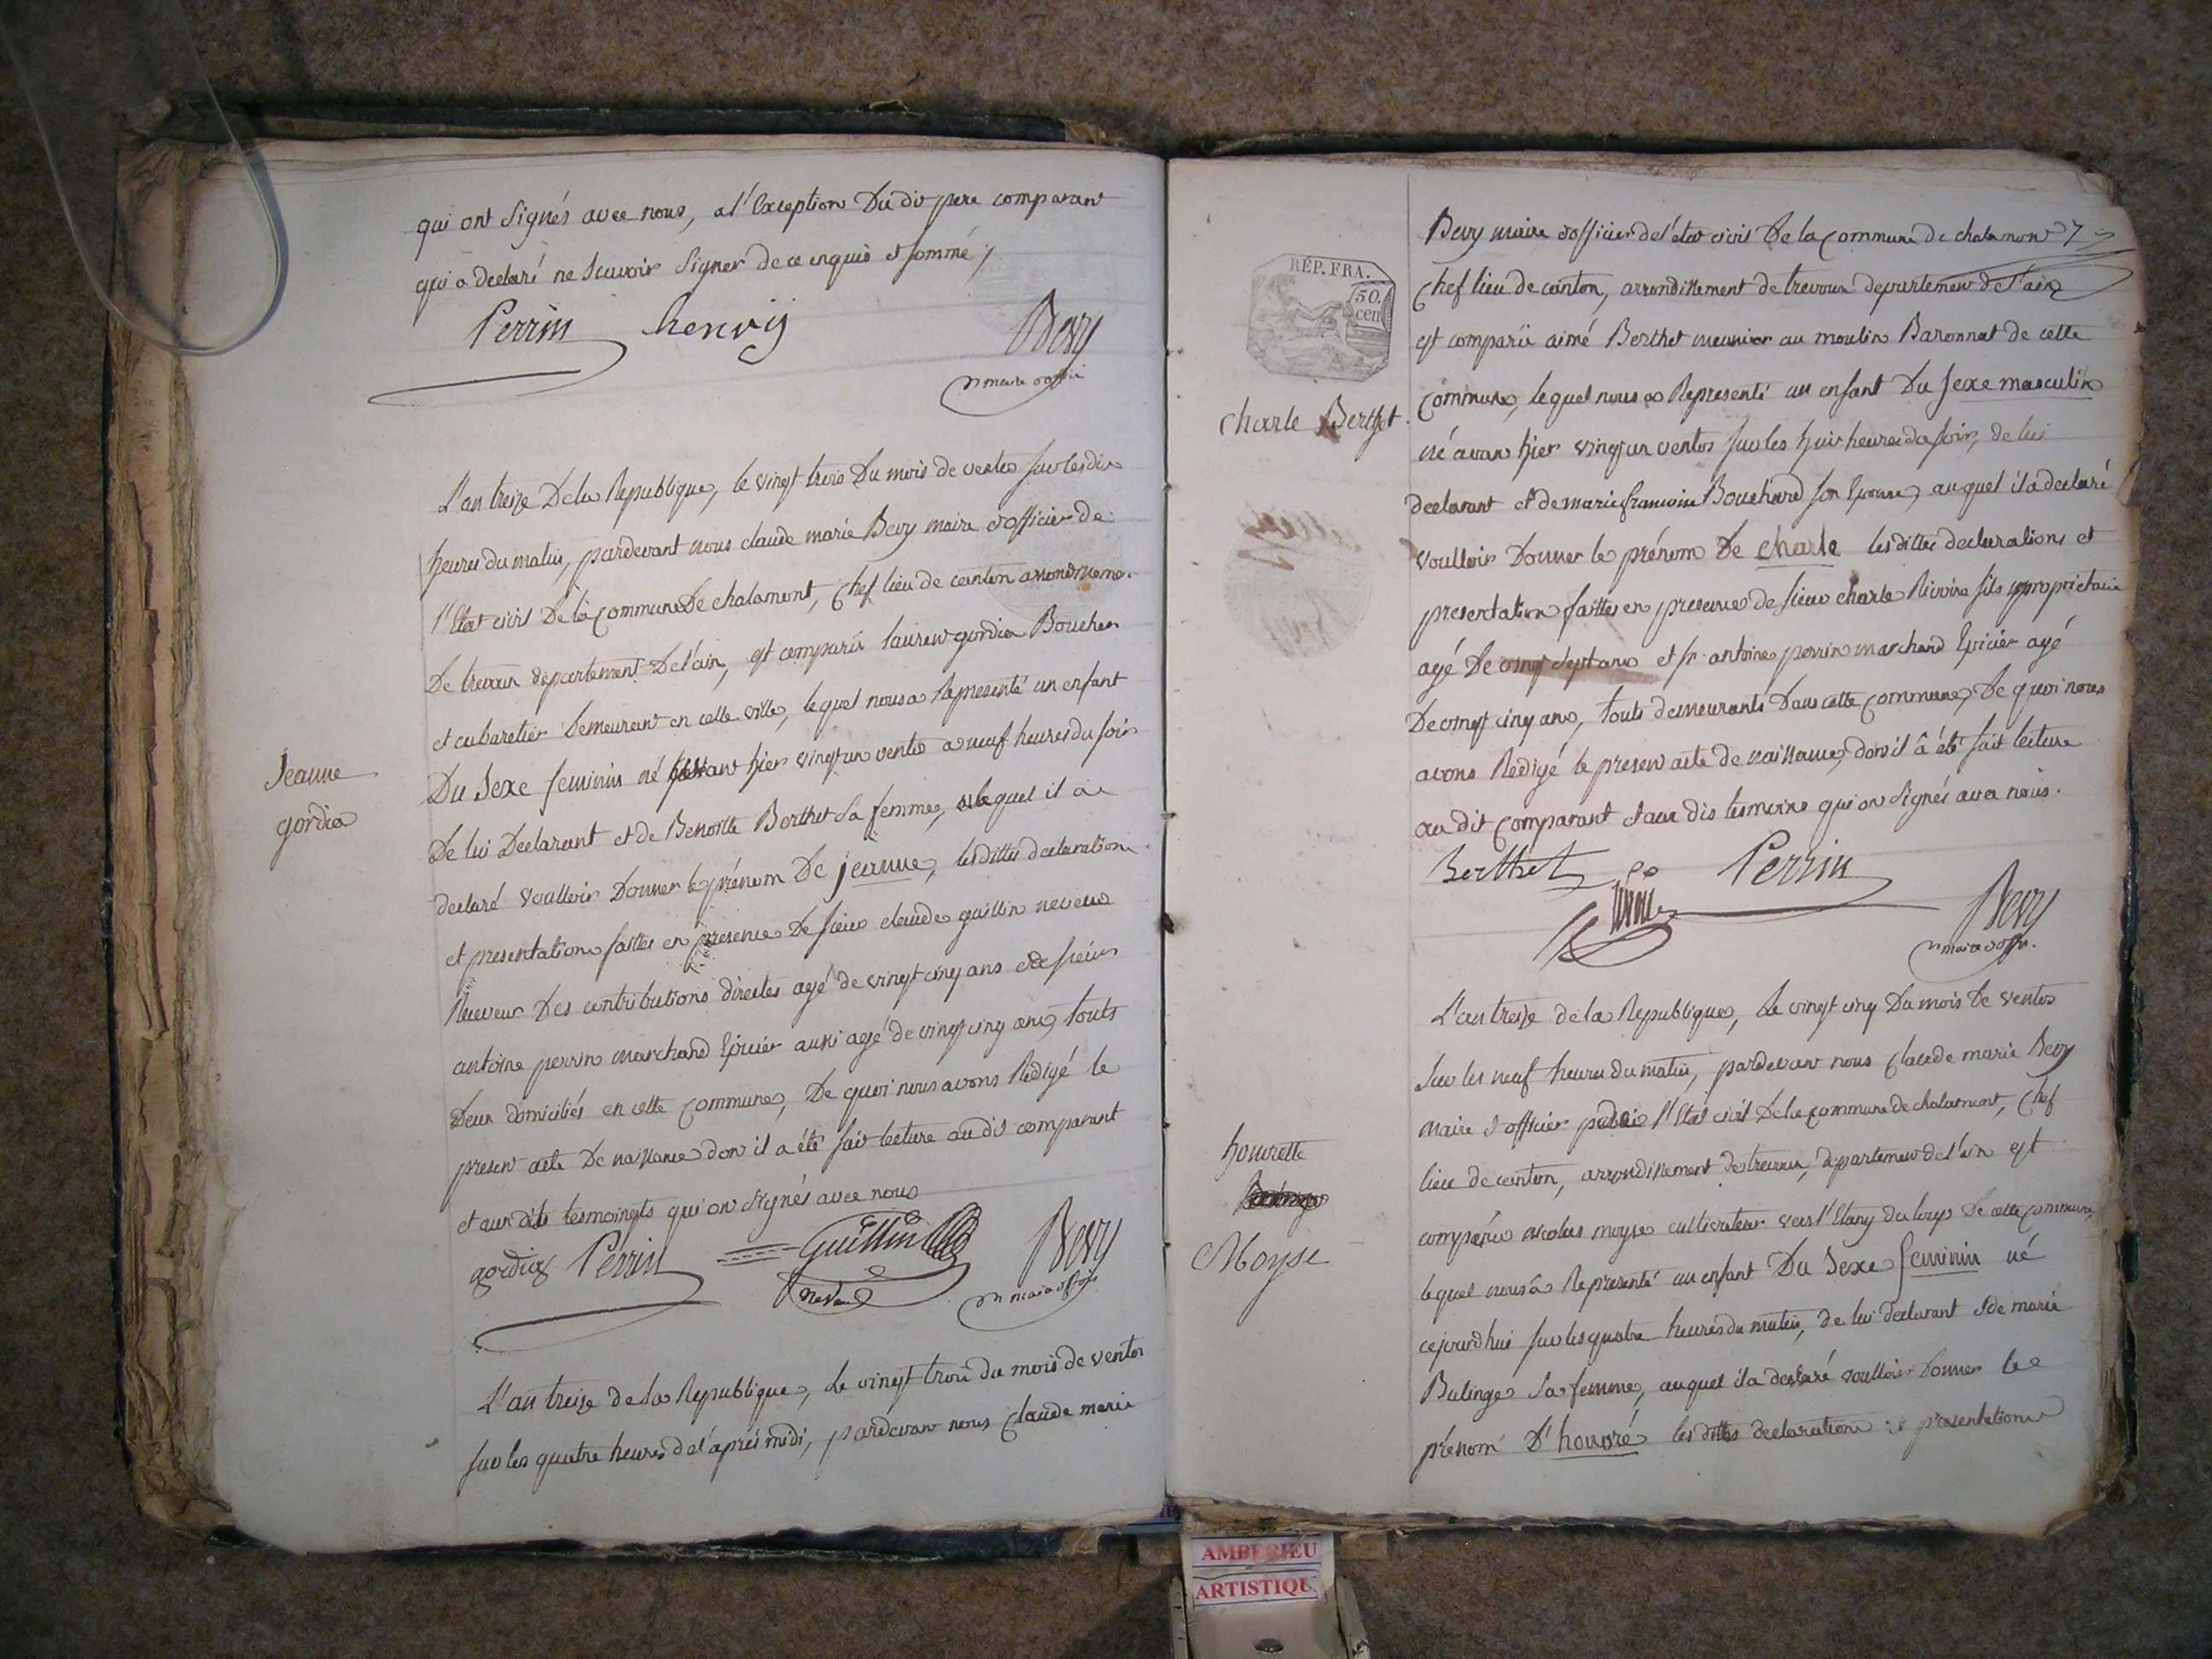 qui ont signés avec nous, a l'Exception Du dit pere comparant
qui a declaré ne scavoir signer de ce enquis et sommé /.
Perrin hervij Bevy
maire
L'an treize De la Republique, le vingt trois Du mois de ventos sur les dix
heures du matin, pardevant nous claude marie Bevy maire et officier de
l'Etat civil De la commune De chalamont, Chef lieu de canton arrondisseme.
De trevoux departement De l'ain, est comparu laurent gordia Boucher
et cabaretier Demeurant en cette ville, lequel nous a Representé un enfant
Jeanne
gordia
Du Sexe feminin né avant hier vingt un ventos a neuf heures du soir
De lui Declarant et de Benoitte Berthet sa femme, auquel il a
declaré voulloir Donner le prénom De jeanne, les dittes declarations
et presentations faittes en presence De sieur claude guillin neveu
Receveur Des contributions directes agé de vingt cinq ans et de sieur
antoine perrin marchand Epicier aussi agé de vingt cinq ans, touts
Deux domiciliés en cette commune, De quoi nous avons Redigé le
present acte De naissance dont il a été fait lecture au dit comparant
et aux dits tesmoingts qui ont signés avec nous
gordia Perrin Guillin Bevy
neveu
L'an treize de la Republique, Le vingt trois du mois de ventos
sur les quatre heures de l'après midi, pardevant nous Claude marie
Bevy maire et officier de l'etat civil De la Commune de chalamont 7
RÉP. FRA.
50.
cen
Chef lieu de canton, arrondissement de trevoux departement de l'ain
est comparu aimé Berthet meunier au moulin Baronnat de cette
Commune, lequel nous a Representé un enfant Du Sexe masculin
Charle Berthet.
né avant hier vingt un ventos sur les huit heures du soir, de lui
declarant et de marie francoise Bouchard son Epouse, auquel il a declaré
voulloir Donner le prénom De charle les dittes declarations et
presentations faittes en presence de sieur charle Rivoire fils proprietaire
agé De vingt sept ans et sr. antoine perrin marchand Epicier agé
De vingt cinq ans, touts demeurants Dans cette Commune, De quoi nous
avons Redigé le present acte de naissance, dont il a été fait lecture
au dit Comparant et aux dis tesmoins qui on signés avec nous.
Berthet Perrin
Bevy
L'an treize de la Republique, Le vingt cinq Du mois De ventos
sur les neuf heures du matin, pardevant nous Claude marie Bevy
maire et officier l'Etat civil De la commune de chalamont, Chef
honorette
Moyse
lieu de canton, arrondissement de trevoux, departement de l'ain est
comparu nicolas moyse cultivateur vers l'Etang du loup De cette Commune,
lequel nous a Representé un enfant Du Sexe feminin né
cejourdhui sur les quatre heures du matin, de lui declarant et de marie
Bulinge sa femme, auquel il a declaré voulloir Donner le
prénom D'honoré les dittes declarations et presentations
AMBERIEU
ARTISTIQU